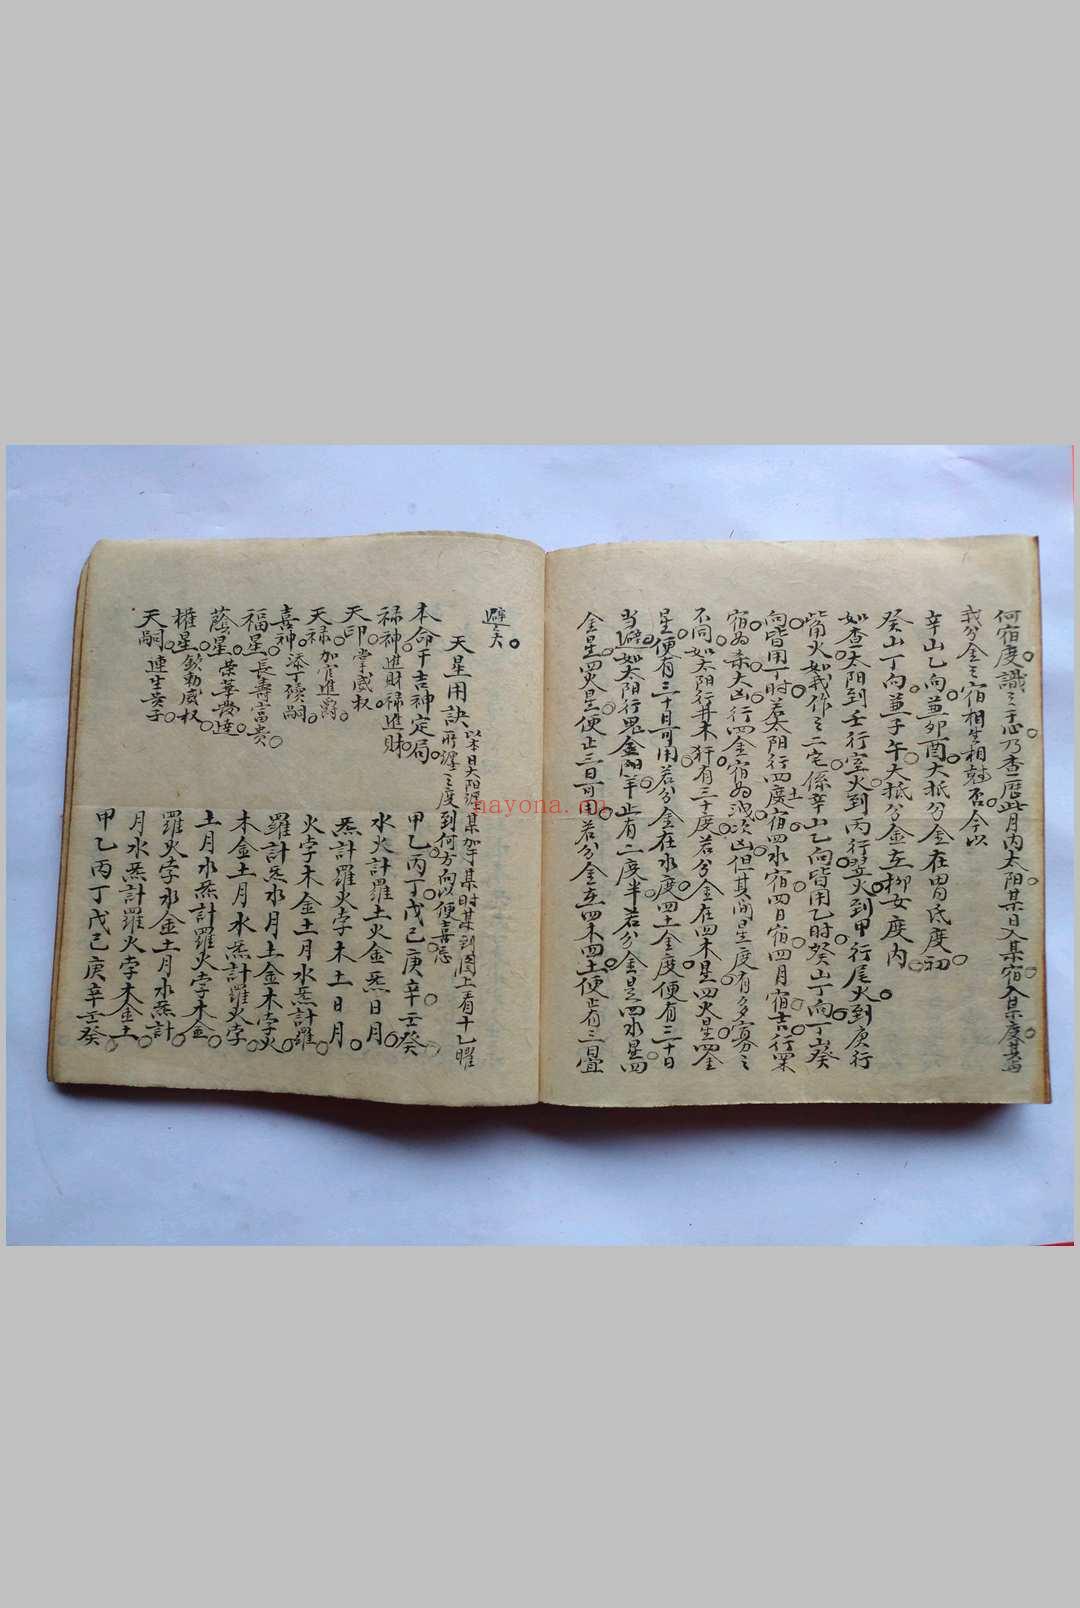 何宿度識之于心乃查歷此月內太阳某日又某宿入某度其
我分金之宿相生相尅否今以
辛山乙向兼卯酉大抵分金在胃氐度初
癸山丁向兼子午大抵分金在柳女度內
如查太阳到壬行室火到丙行翌火到甲行尾火到庚行
觜火如我作之二宅係辛山乙向皆用乙时癸山丁向丁山癸
向皆用丁时若太阳行四土宿四水宿四日宿四月宿吉行四木
宿為杀大凶行四金宿為洩次凶但其间星度有多寡之
不同如太阳行井木犴有三十度若分金在四木星四火星四金
星便有三十日可用若分金在水度四土金度便有三十日
当避如太阳行鬼金羊止有二度半若分金是四水星四
金星四火星便止三日可用若分金在四木四土便止有三日當
避矣
天星用訣
以本日太阳躔某加于某时某到图上看十乙曜
所躔之度到何方向以便喜忌
本命干吉神定局 甲乙丙丁戊己庚辛壬癸
祿神進財祿進財 水火計羅土火金炁日月
天印掌威权 炁計羅火孛木土日月
天祿加官進爵 火孛木金土月水炁計羅
喜神添丁續嗣 羅計炁水月土金木孛火
福星長壽富貴 木金土月水炁計羅火孛
蔭星榮華發達 土月水炁計羅火孛木金
權星欽勅威权 羅火孛水金土月水炁計
天嗣連生貴子 月水炁計羅火孛木金土
甲乙丙丁戊己庚辛壬癸
nayona.cn